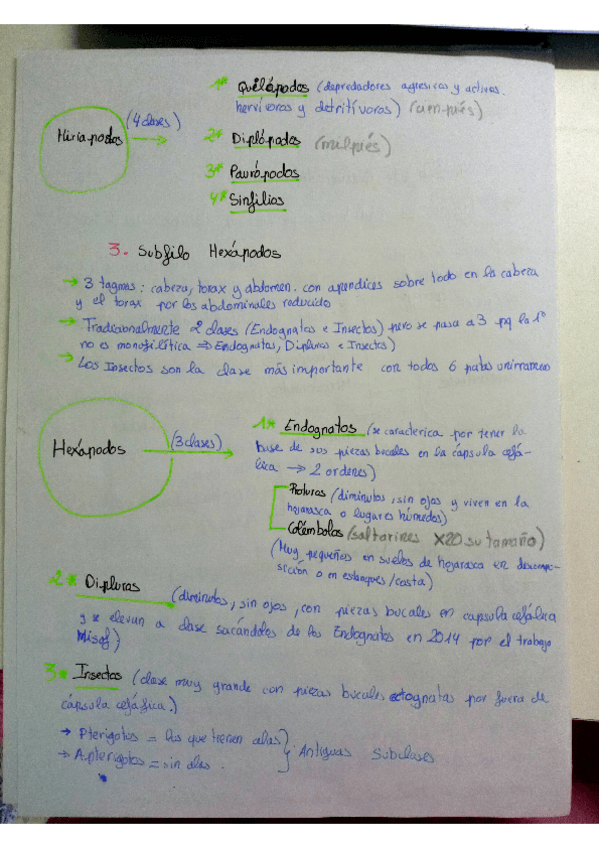 1* Quilópodos (depredadores agresivos y activos.
hervívoros y detritívoros) (cien-piés)
Miriapodos (4 clases)
2* Diplópodos (milpiés)
3* Paurópodos
4* Sinfilios
3. Subfilo Hexápodos
→ 3 tagmas: cabeza, torax y abdomen. con apendices sobre todo en la cabeza
y el torax por los abdominales reducido
→ Tradicionalmente 2 clases (Endognatos e Insectos) pero se pasa a 3 pq la 1º
no es monofilítica ⇒ Endognatas, Dipluras e Insectos)
→ Los Insectos son la clase más importante con todos 6 patas unirrameas
Hexápodos (3 clases)
1* Endognatos (se caracterica por tener la
base de sus piezas bucales en la cápsula cefá-
lica → 2 ordenes)
Proturos (diminutos, sin ojos y viven en la
hojarasca o lugares húmedos)
Colémbolos (saltarines x20 su tamaño)
(Muy pequeños en suelos de hojarasca en descompo-
sición o en estanques/costa)
2* Dipluras (diminutos, sin ojos, con piezas bucales en capsula cefálica
y se elevan a clase sacándolos de los Endognatos en 2014 por el trabajo
Misof)
3* Insectos (clase muy grande con piezas bucales ectognatas por fuera de
cápsula cefáfica.)
→ Pterigotos = los que tienen alas } Antiguas subclases
→ Apterigotos = sin alas.